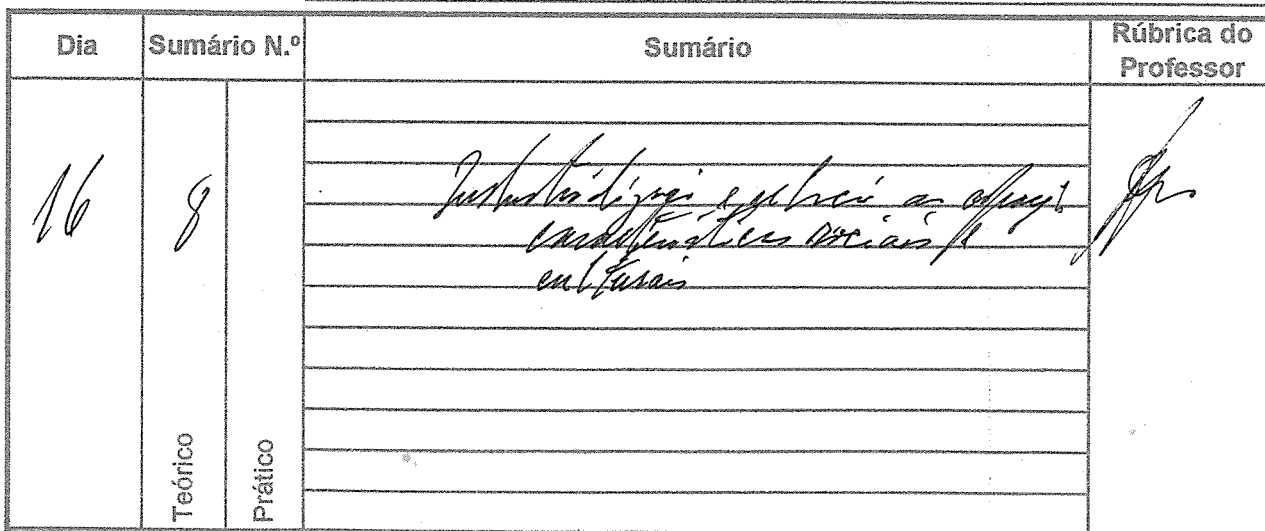 Dia Sumário N.º Sumário Rúbrica do Professor
16 8
características sociais e
culturais
Teórico Prático